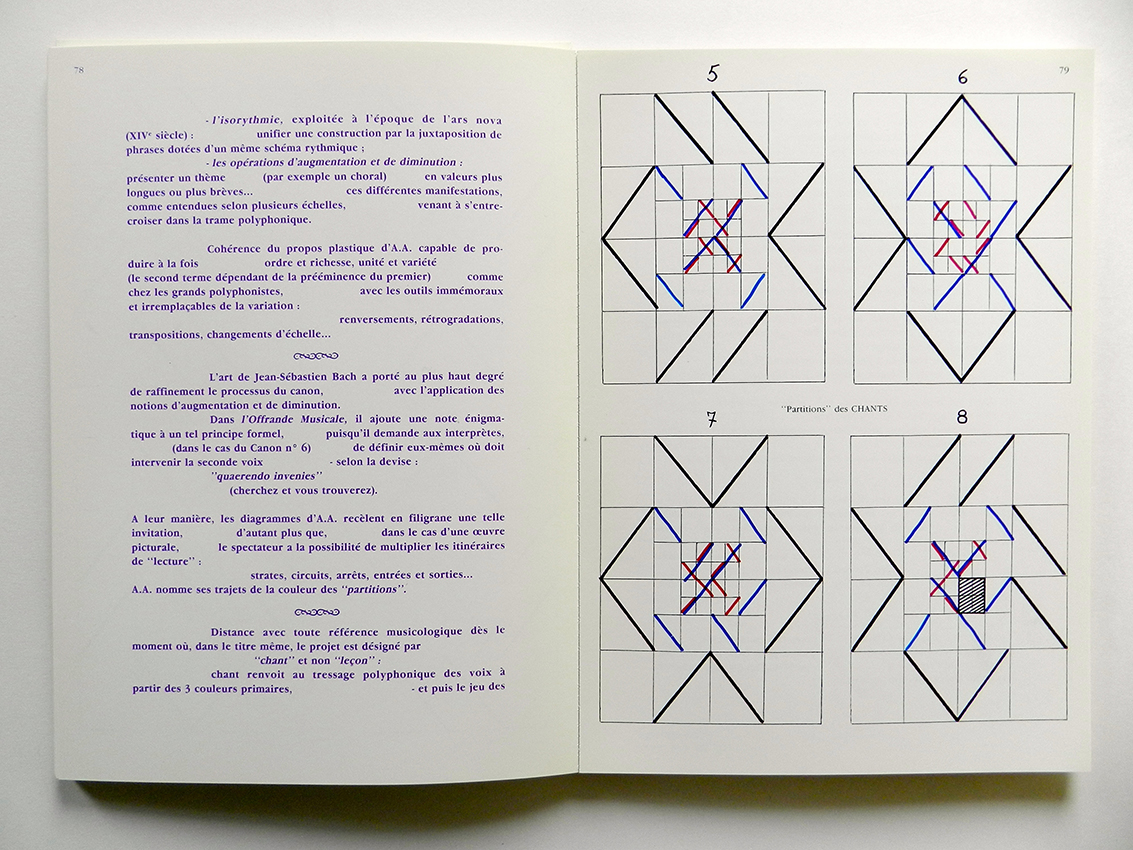 78
- l'isorythmie, exploitée à l'époque de l'ars nova
(XIVe siècle) : unifier une construction par la juxtaposition de
phrases dotées d'un même schéma rythmique ;
- les opérations d'augmentation et de diminution :
présenter un thème (par exemple un choral) en valeurs plus
longues ou plus brèves... ces différentes manifestations,
comme entendues selon plusieurs échelles, venant à s'entre-
croiser dans la trame polyphonique.
Cohérence du propos plastique d'A.A. capable de pro-
duire à la fois ordre et richesse, unité et variété
(le second terme dépendant de la prééminence du premier) comme
chez les grands polyphonistes, avec les outils immémoraux
et irremplaçables de la variation :
renversements, rétrogradations,
transpositions, changements d'échelle...
L'art de Jean-Sébastien Bach a porté au plus haut degré
de raffinement le processus du canon, avec l'application des
notions d'augmentation et de diminution.
Dans l'Offrande Musicale, il ajoute une note énigma-
tique à un tel principe formel, puisqu'il demande aux interprètes,
(dans le cas du Canon n° 6) de définir eux-mêmes où doit
intervenir la seconde voix - selon la devise :
"quaerendo invenies"
(cherchez et vous trouverez).
A leur manière, les diagrammes d'A.A. recèlent en filigrane une telle
invitation, d'autant plus que, dans le cas d'une œuvre
picturale, le spectateur a la possibilité de multiplier les itinéraires
de "lecture" :
strates, circuits, arrêts, entrées et sorties...
A.A. nomme ses trajets de la couleur des "partitions".
Distance avec toute référence musicologique dès le
moment où, dans le titre même, le projet est désigné par
"chant" et non "leçon" :
chant renvoit au tressage polyphonique des voix à
partir des 3 couleurs primaires, - et puis le jeu des
79
5
6
"Partitions" des CHANTS
7
8